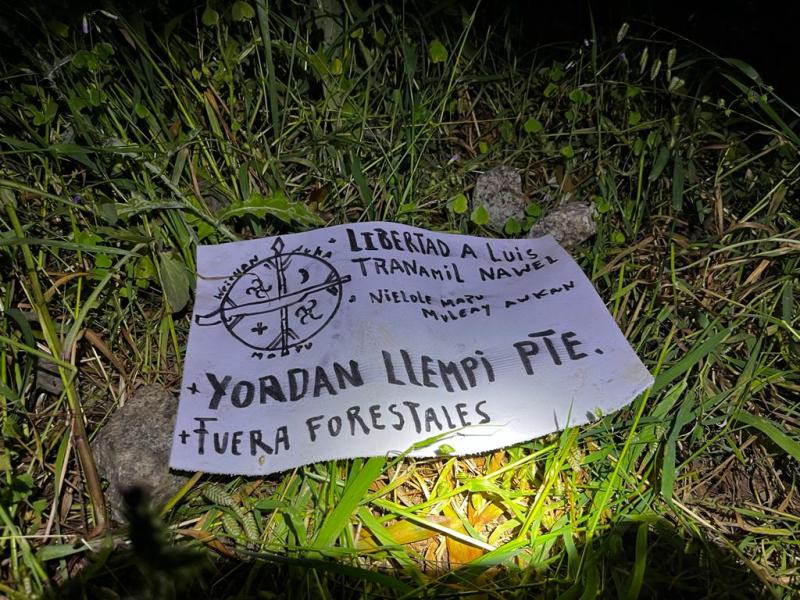 WEICHAN AUKA MAPU
+ LIBERTAD A LUIS
TRANAMIL NAWEL
• NIELOLE MAPU
MVLEAY AUKAN
+ YORDAN LLEMPI PTE.
+ FUERA FORESTALES